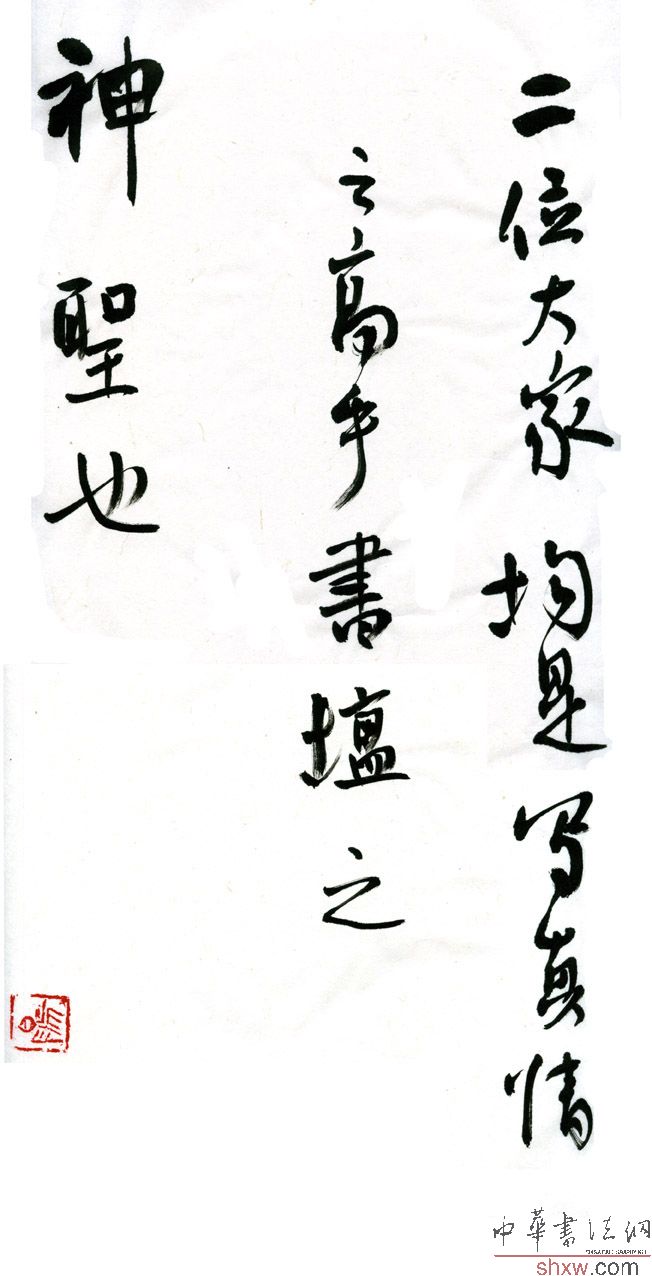 二位大家均是写真情
之高手書壇之
神聖也
中華書法網
shxw.com